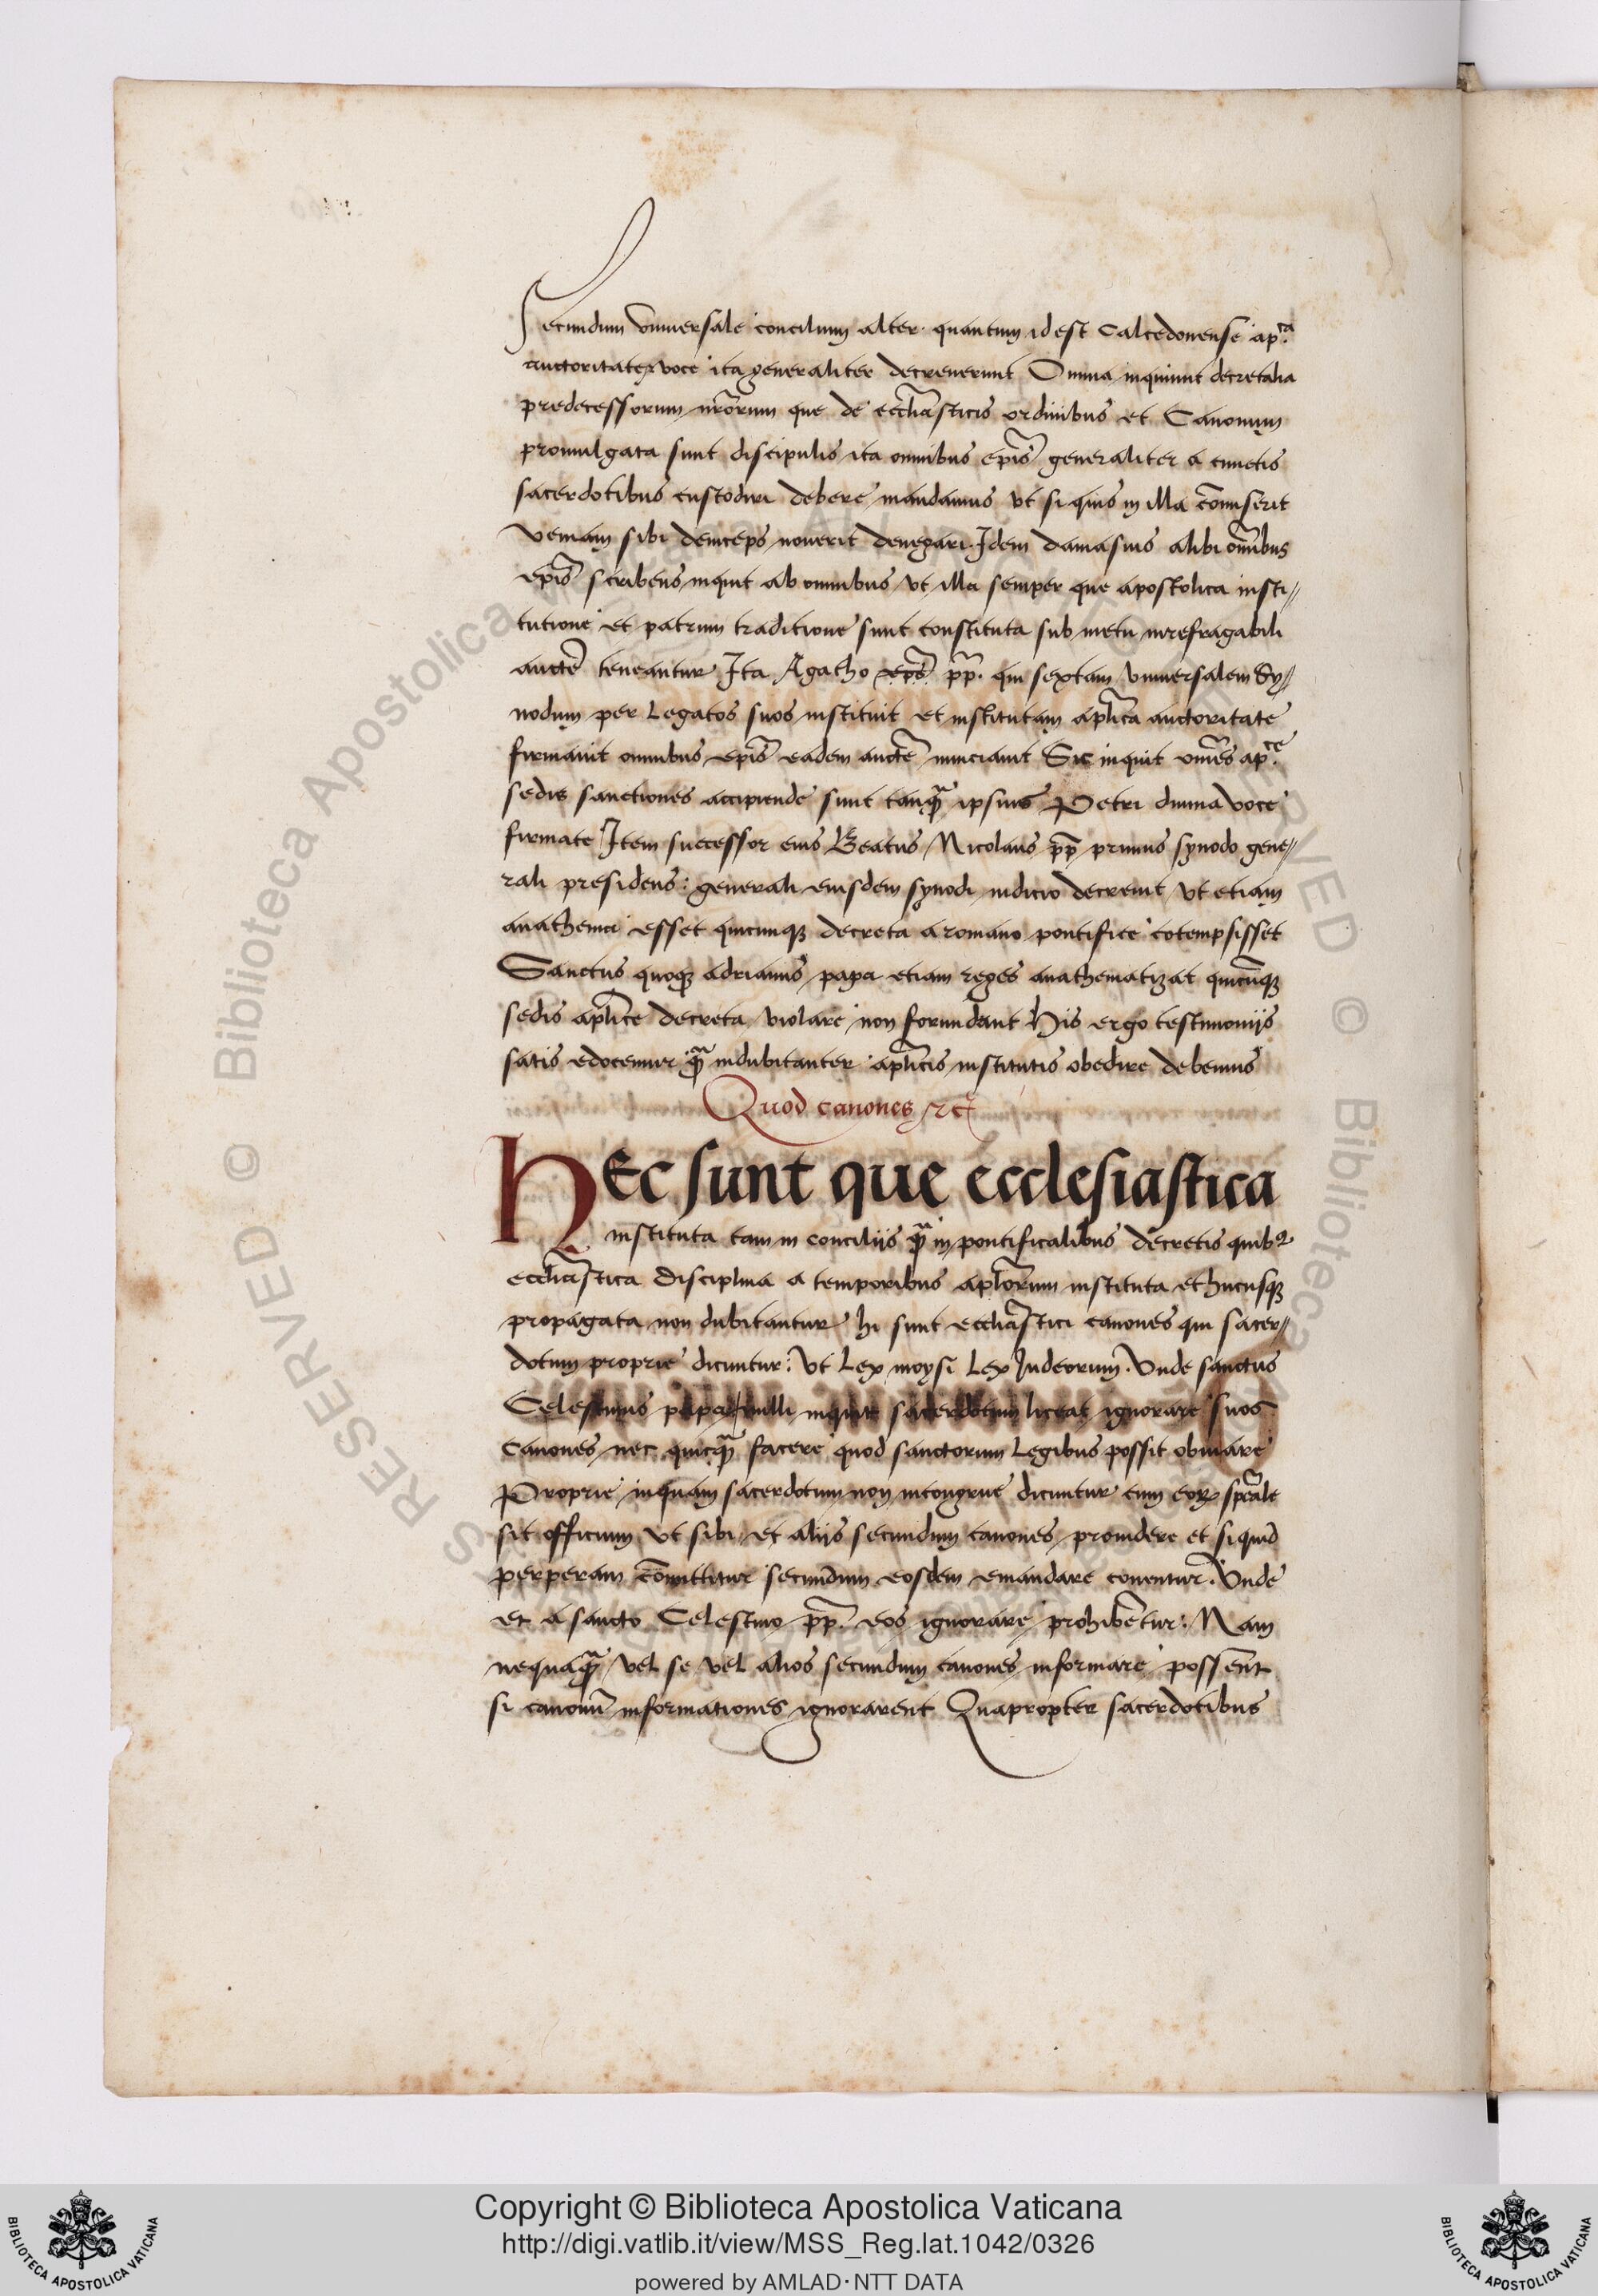 Secundum vniuersale concilium alter quantum id est Calcedonense ap.ca
auctoritate voce ita generaliter decreuerunt Omnia inquiunt decretalia
predecessorum nr̃orum que de eccli͠asticis ordinibus et Canonum
promulgata sunt discipulis ita omnibus ep̃is generaliter a cunctis
sacerdotibus custodiri debere mandamus vt si quis in illa cõmiserit
veniam sibi deinceps nouerit denegari. Idem damasus alibi om̃ibus
ep̃is scribens inquit ab omnibus vt illa semper que apostolica insti//
tutione et patrum traditione sunt constituta sub metu irrefragabili
aucte͠ teneantur Ita Agatho ep̃s pp̃. qui sextam vniuersalem Sy//
nodum per Legatos suos instituit et institutam apl̃ica auctoritate
firmauit omnibus ep̃is eadem aucte͠ nunciauit Sic inquit om̃es ap.ce
sedis sanctiones accipiende sunt tanq̃ ipsius Petri diuina voce
firmate Item successor eius Beatus Nicolaus pp̃ primus synodo gene//
rali presidens: generali eiusdem synodi iudicio decreuit vt etiam
anathema esset quicunq₃ decreta a romano pontifice cotempsisset
Sanctus quoq₃ adrianus papa etiam reges anathematizat quicũq₃
sedis apl̃ice decreta violare non formidant His ergo testimonijs
satis edocemur q̃ indubitanter apl̃icis institutis obedire debemus
Quod canones &c
HEc sunt que ecclesiastica
instituta tam in concilijs q̃ in pontificalibus decretis quib9
eccli͠astica disciplina a temporibus apl̃orum instituta et hucusq₃
propagata non dubitantur hi sunt eccli͠astici canones qui sacer//
dotum proprie dicuntur: vt Lex moysi Lex Iudeorum. Vnde sanctus
Celestinus papa nulli inquit sacerdotum liceat ignorare suos
Canones nec quicq̃ facere quod sanctorum Legibus possit obuiare
Proprie inquam sacerdotum non incongrue dicuntur cum eoꝝ sp̃eale
sit officium vt sibi et alijs secundum canones prouidere et si quid
perperam cõmittitur secundum eosdem emandare conentur. Vnde
et a sancto Celestino pp̃. eos ignorare prohibentur: Nam
nequaq̃ vel se vel alios secundum canones informare possent
si canonũ informationes ignorarent Quapropter sacerdotibus
RESERVED © Biblioteca Apostolica
Copyright © Biblioteca Apostolica Vaticana
http://digi.vatlib.it/view/MSS_Reg.lat.1042/0326
powered by AMLAD·NTT DATA
BIBLIOTECA APOSTOLICA VATICANA
BIBLIOTECA APOSTOLICA VATICANA